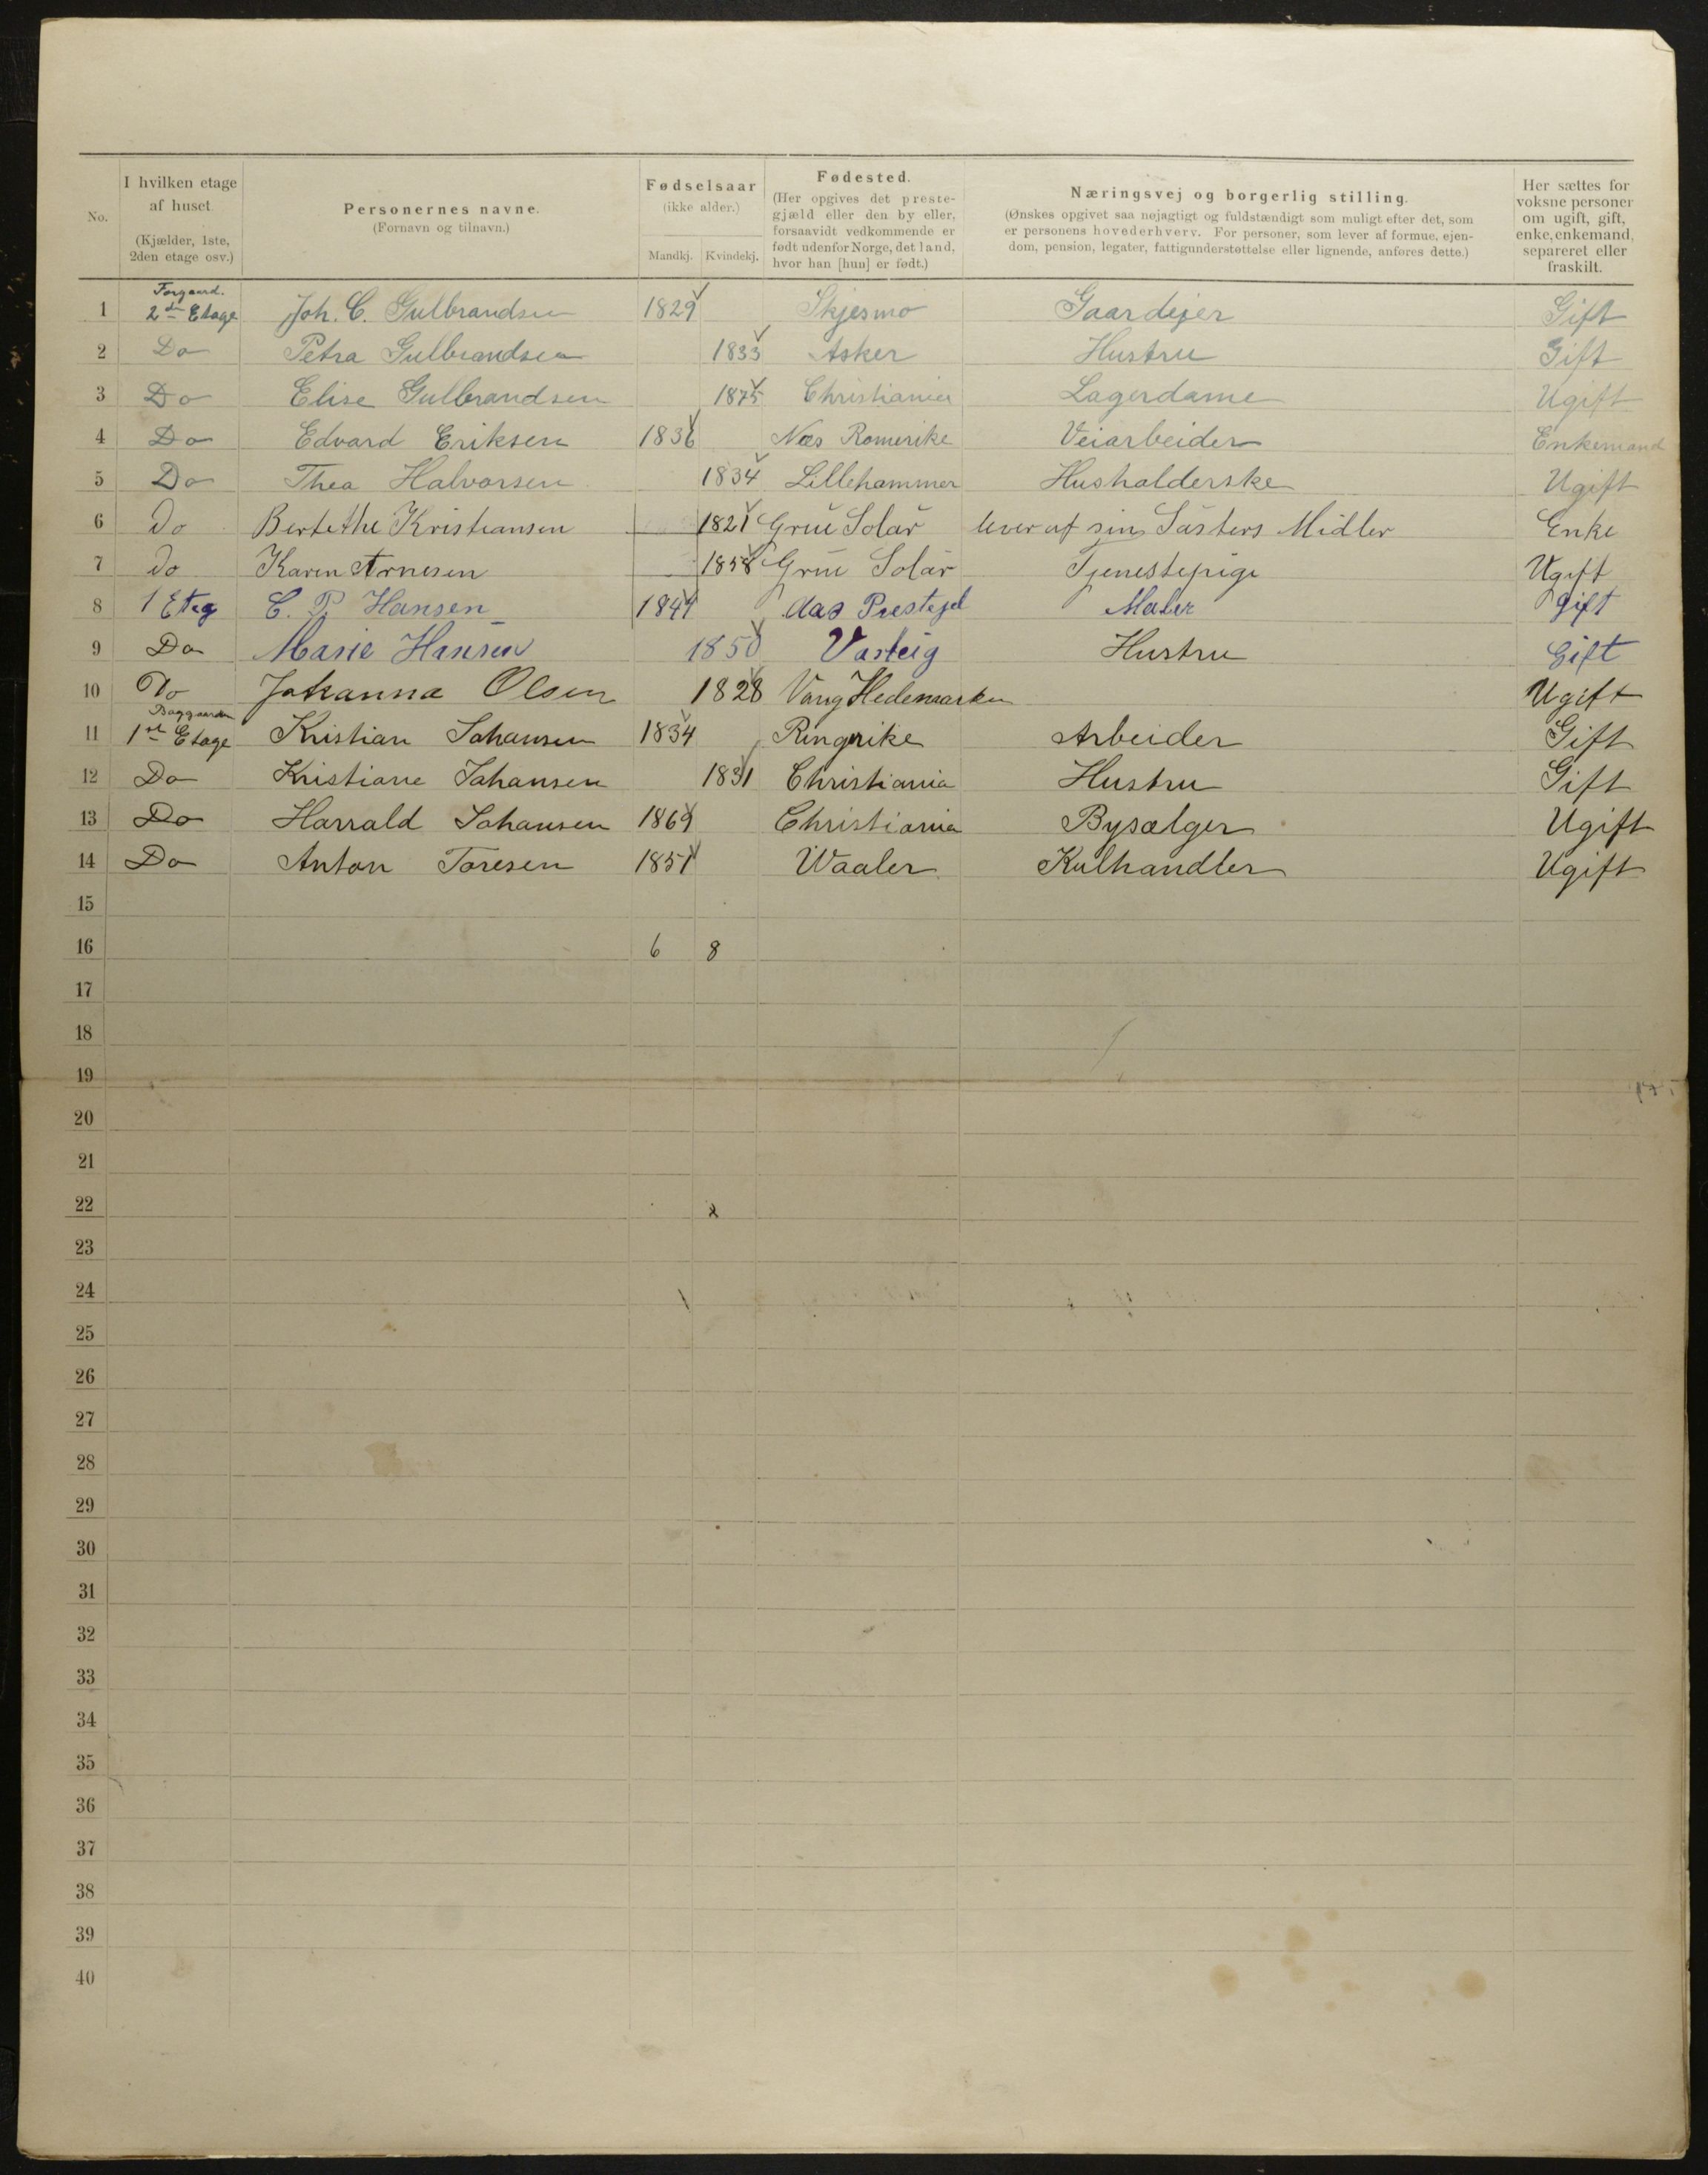 No.
I hvilken etage af huset.
(Kjælder, 1ste, 2den etage osv.)
Personernes navne.
(Fornavn og tilnavn.)
Fødselsaar
(ikke alder.)
Mandkj. Kvindekj.
Fødested.
(Her opgives det preste-
gjæld eller den by eller,
forsaavidt vedkommende er
født udenfor Norge, det land,
hvor han [hun] er født.)
Næringsvej og borgerlig stilling.
(Ønskes opgivet saa nøjagtigt og fuldstændigt som muligt efter det, som
er personens hovederhverv. For personer, som lever af formue, ejen-
dom, pension, legater, fattigunderstøttelse eller lignende, anføres dette.)
Her sættes for
voksne personer
om ugift, gift,
enke, enkemand,
separeret eller
fraskilt.
Forgaard.
1 2den Etage Joh. C. Gulbrandsen 1829 Skjesmo Gaardejer Gift
2 Do Petra Gulbrandsen 1833 Asker Hustru Gift
3 Do Elise Gulbrandsen 1875 Christiania Lagerdame Ugift
4 Do Edvard Eriksen 1836 Næs Romerike Veiarbeider Enkemand
5 Do Thea Halvorsen 1834 Lillehammer Husholderske Ugift
6 Do Bertethe Kristiansen 1821 Grue Solør lever af sin Søsters Midler Enke
7 Do Karen Arnesen 1858 Grue Solør Tjenestepige Ugift
8 1 Etag C. P. Hansen 1844 Aas Prestegel Maler gift
9 Do Marie Hansen 1850 Varteig Hustru Gift
10 Do Johanna Olsen 1828 Vang Hedemarken Ugift
Baggaarden
11 1ste Etage Kristian Johansen 1834 Ringrike Arbeider Gift
12 Do Kristiane Johansen 1831 Christiania Hustru Gift
13 Do Harrald Johansen 1869 Christiania Bysælger Ugift
14 Do Anton Toresen 1851 Waaler Kulhandler Ugift
15
16 6 8
17
18
19
20
21
22
23
24
25
26
27
28
29
30
31
32
33
34
35
36
37
38
39
40